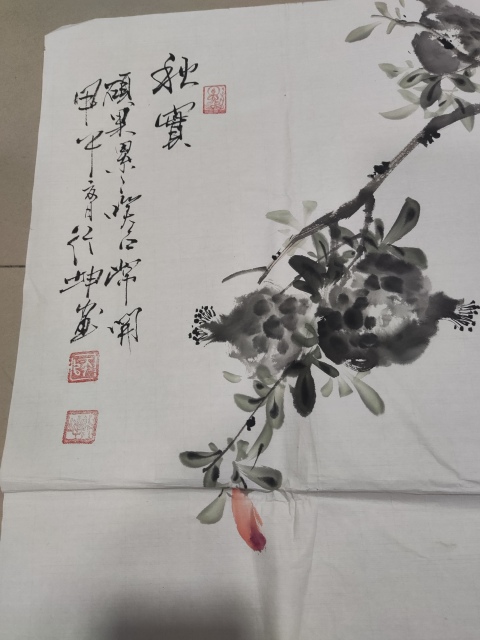 秋寶
碩果累々 笑口常開
甲午 夏月 行坤畫